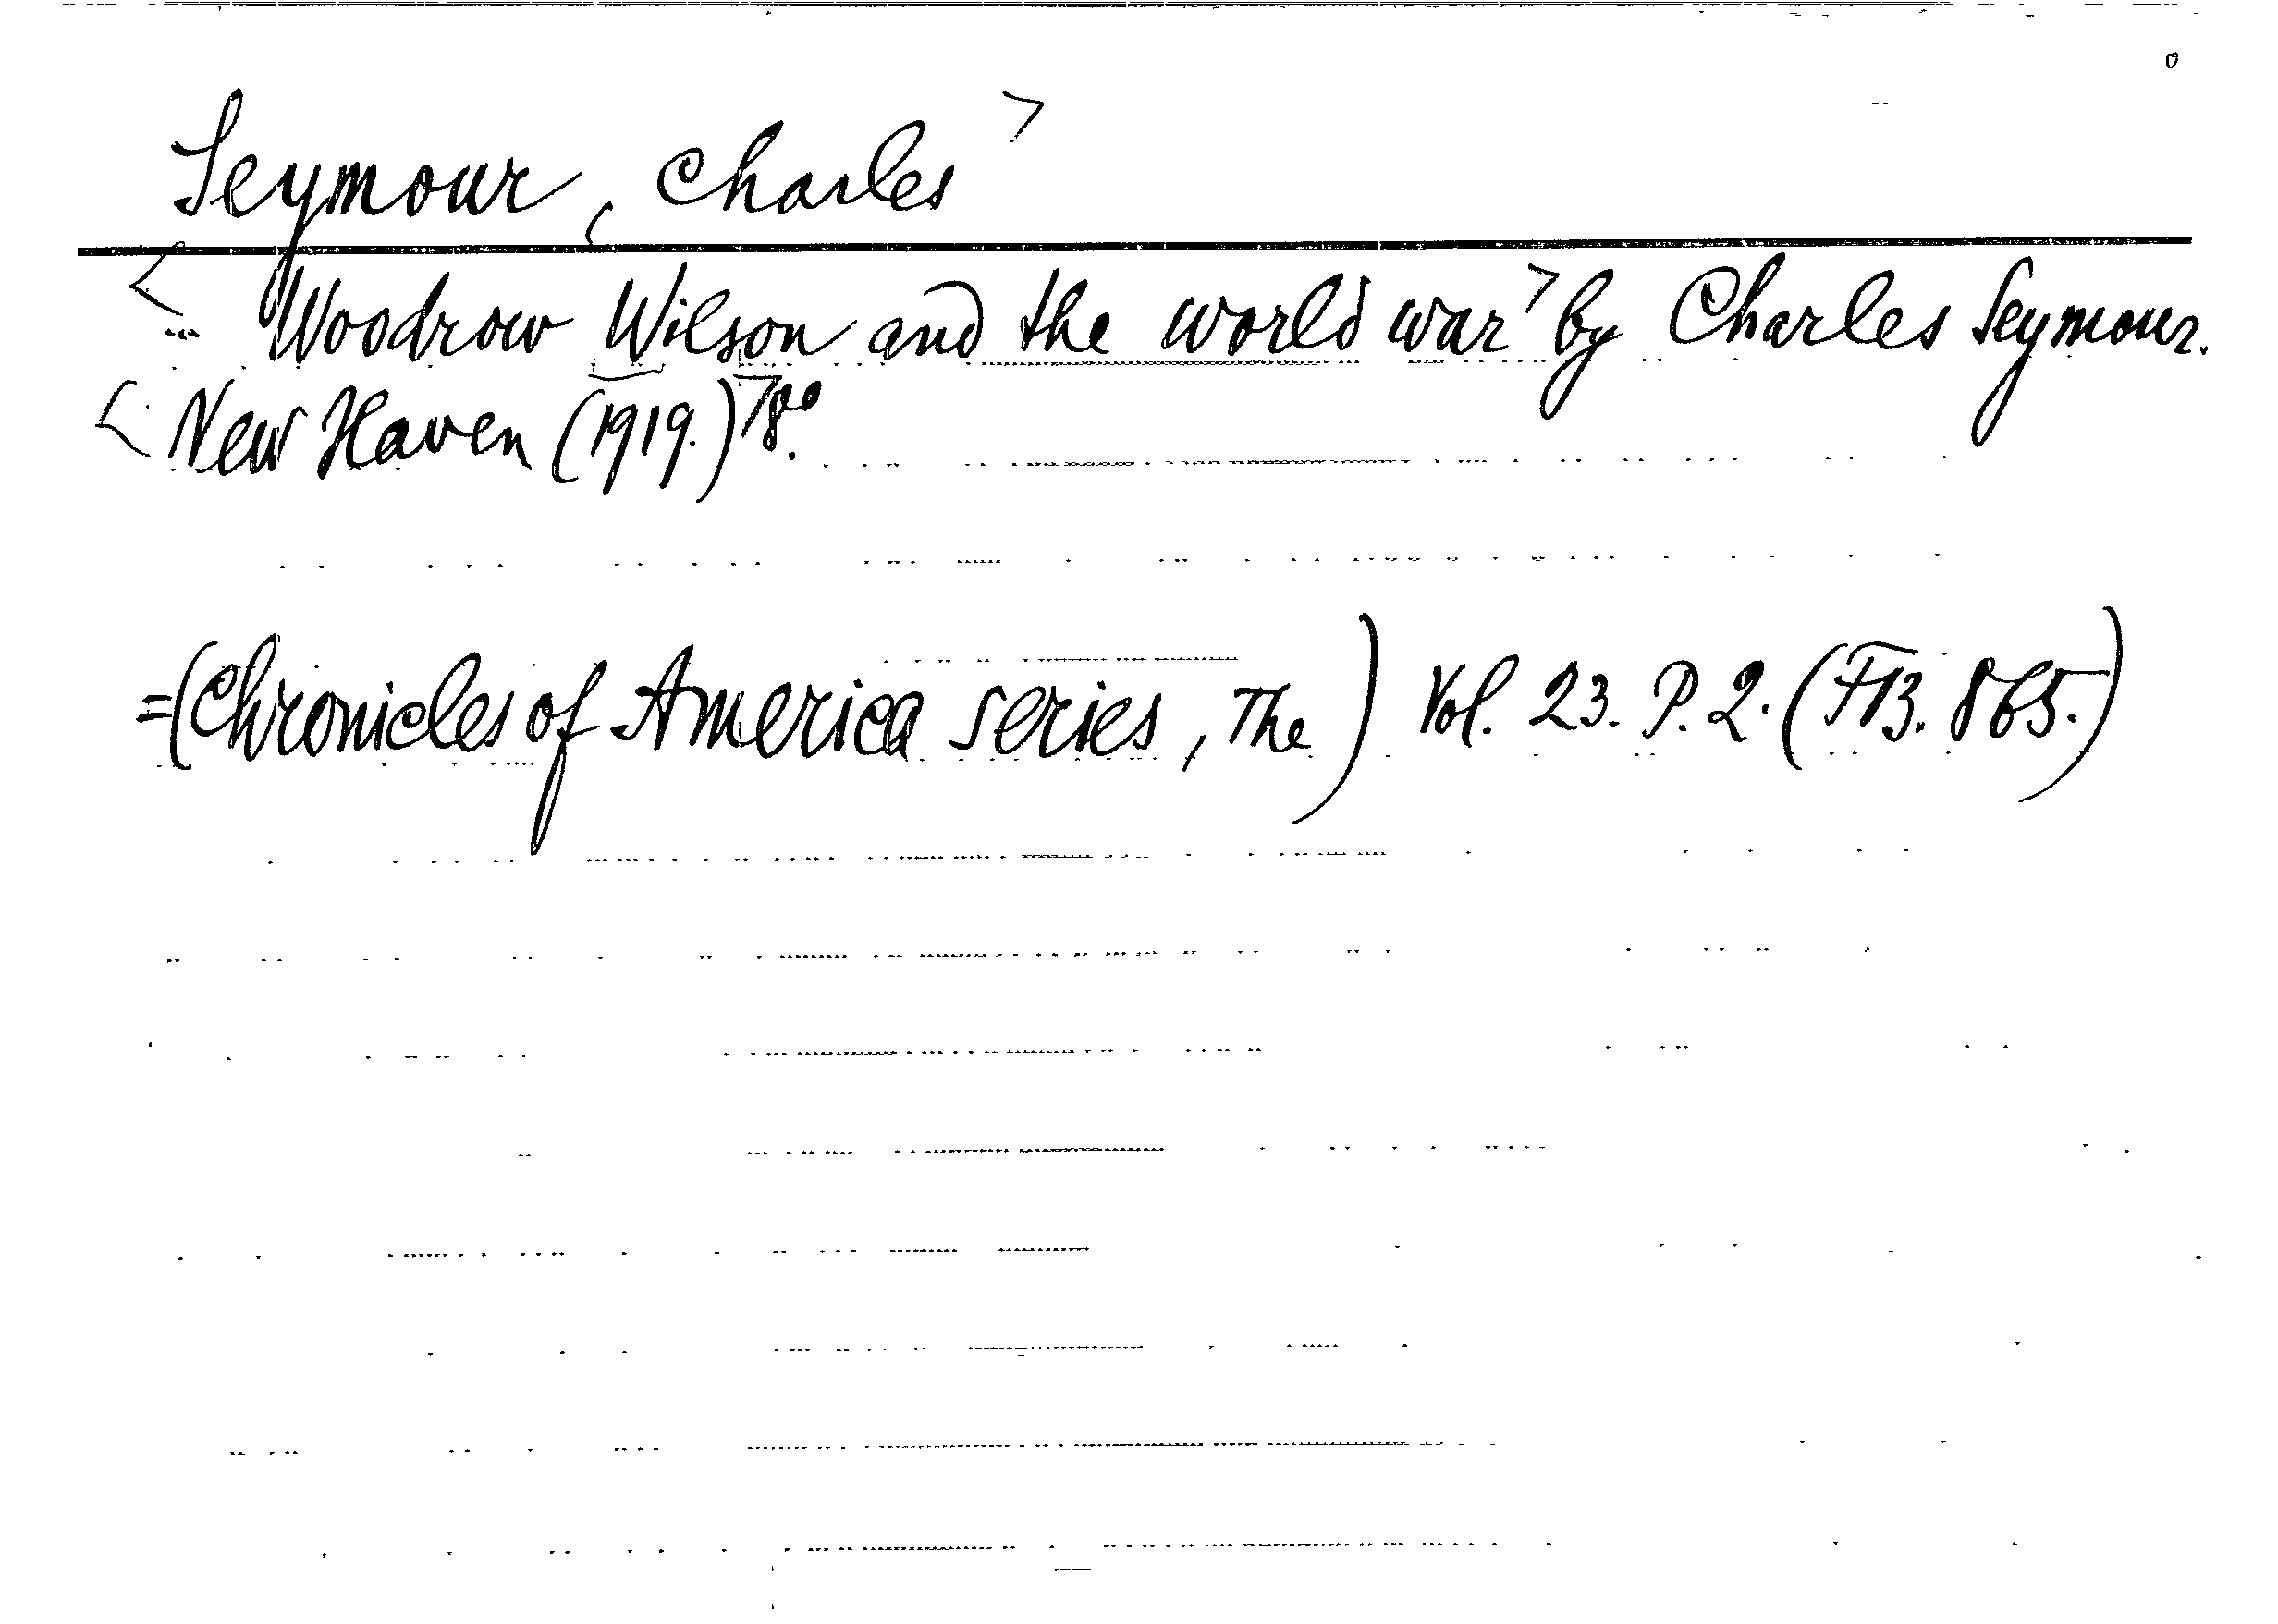 Seymour, Charles
Woodrow Wilson and the world war by Charles Seymour.
New Haven (1919.) 8°.
=(Chronicles of America series, The) Vol. 23. P. 2. (FB. 865.)